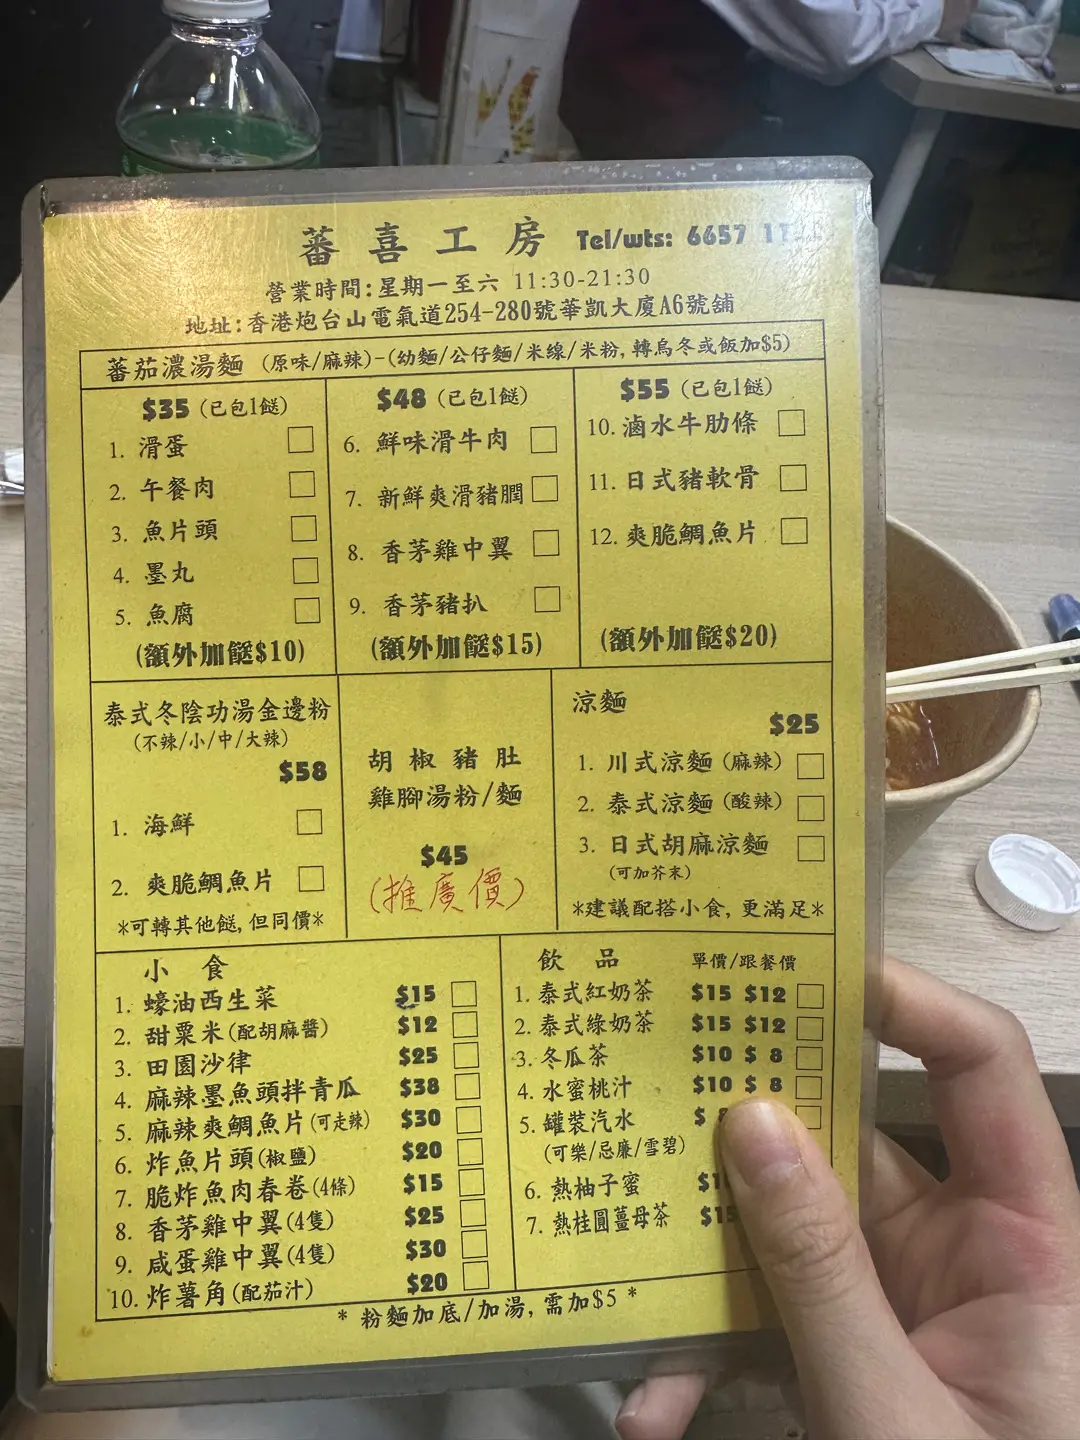 蕃喜工房 Tel/wts: 6657
營業時間:星期一至六 11:30-21:30
地址:香港炮台山電氣道254-280號華凱大廈A6號舖
蕃茄濃湯麵 (原味/麻辣)-(幼麵/公仔麵/米線/米粉, 轉烏冬或飯加$5)
$35 (已包1餸)
1. 滑蛋
2. 午餐肉
3. 魚片頭
4. 墨丸
5. 魚腐
(額外加餸$10)
$48 (已包1餸)
6. 鮮味滑牛肉
7. 新鮮爽滑豬膶
8. 香茅雞中翼
9. 香茅豬扒
(額外加餸$15)
$55 (已包1餸)
10. 滷水牛肋條
11. 日式豬軟骨
12. 爽脆鯛魚片
(額外加餸$20)
泰式冬陰功湯金邊粉
(不辣/小/中/大辣)
$58
1. 海鮮
2. 爽脆鯛魚片
*可轉其他餸, 但同價*
胡椒豬肚
雞腳湯粉/麵
$45
(推廣價)
涼麵
$25
1. 川式涼麵 (麻辣)
2. 泰式涼麵 (酸辣)
3. 日式胡麻涼麵
(可加芥末)
*建議配搭小食, 更滿足*
小食
1. 蠔油西生菜 $15
2. 甜粟米(配胡麻醬) $12
3. 田園沙律 $25
4. 麻辣墨魚頭拌青瓜 $38
5. 麻辣爽鯛魚片(可走辣) $30
6. 炸魚片頭(椒鹽) $20
7. 脆炸魚肉春卷(4條) $15
8. 香茅雞中翼(4隻) $25
9. 咸蛋雞中翼(4隻) $30
10. 炸薯角(配茄汁) $20
飲品 單價/跟餐價
1. 泰式紅奶茶 $15 $12
2. 泰式綠奶茶 $15 $12
3. 冬瓜茶 $10 $ 8
4. 水蜜桃汁 $10 $ 8
5. 罐裝汽水 $
(可樂/忌廉/雪碧)
6. 熱柚子蜜
7. 熱桂圓薑母茶 $15
* 粉麵加底/加湯, 需加$5 *